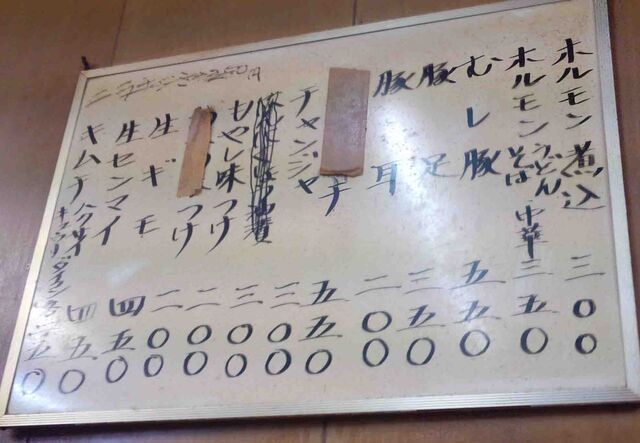 ホルモン煮込 三〇〇
ホルモンうどんそば中華 三五〇
むし豚 五五〇
豚足 三五〇
豚耳 二〇〇
チ
チャンジャ 五五〇
三〇〇
もやし味つけ 三〇〇
つけ 二〇〇
生ギモ 二〇〇
生センマイ 四五〇
キムチ ハクサイ 四五〇
五〇
250円